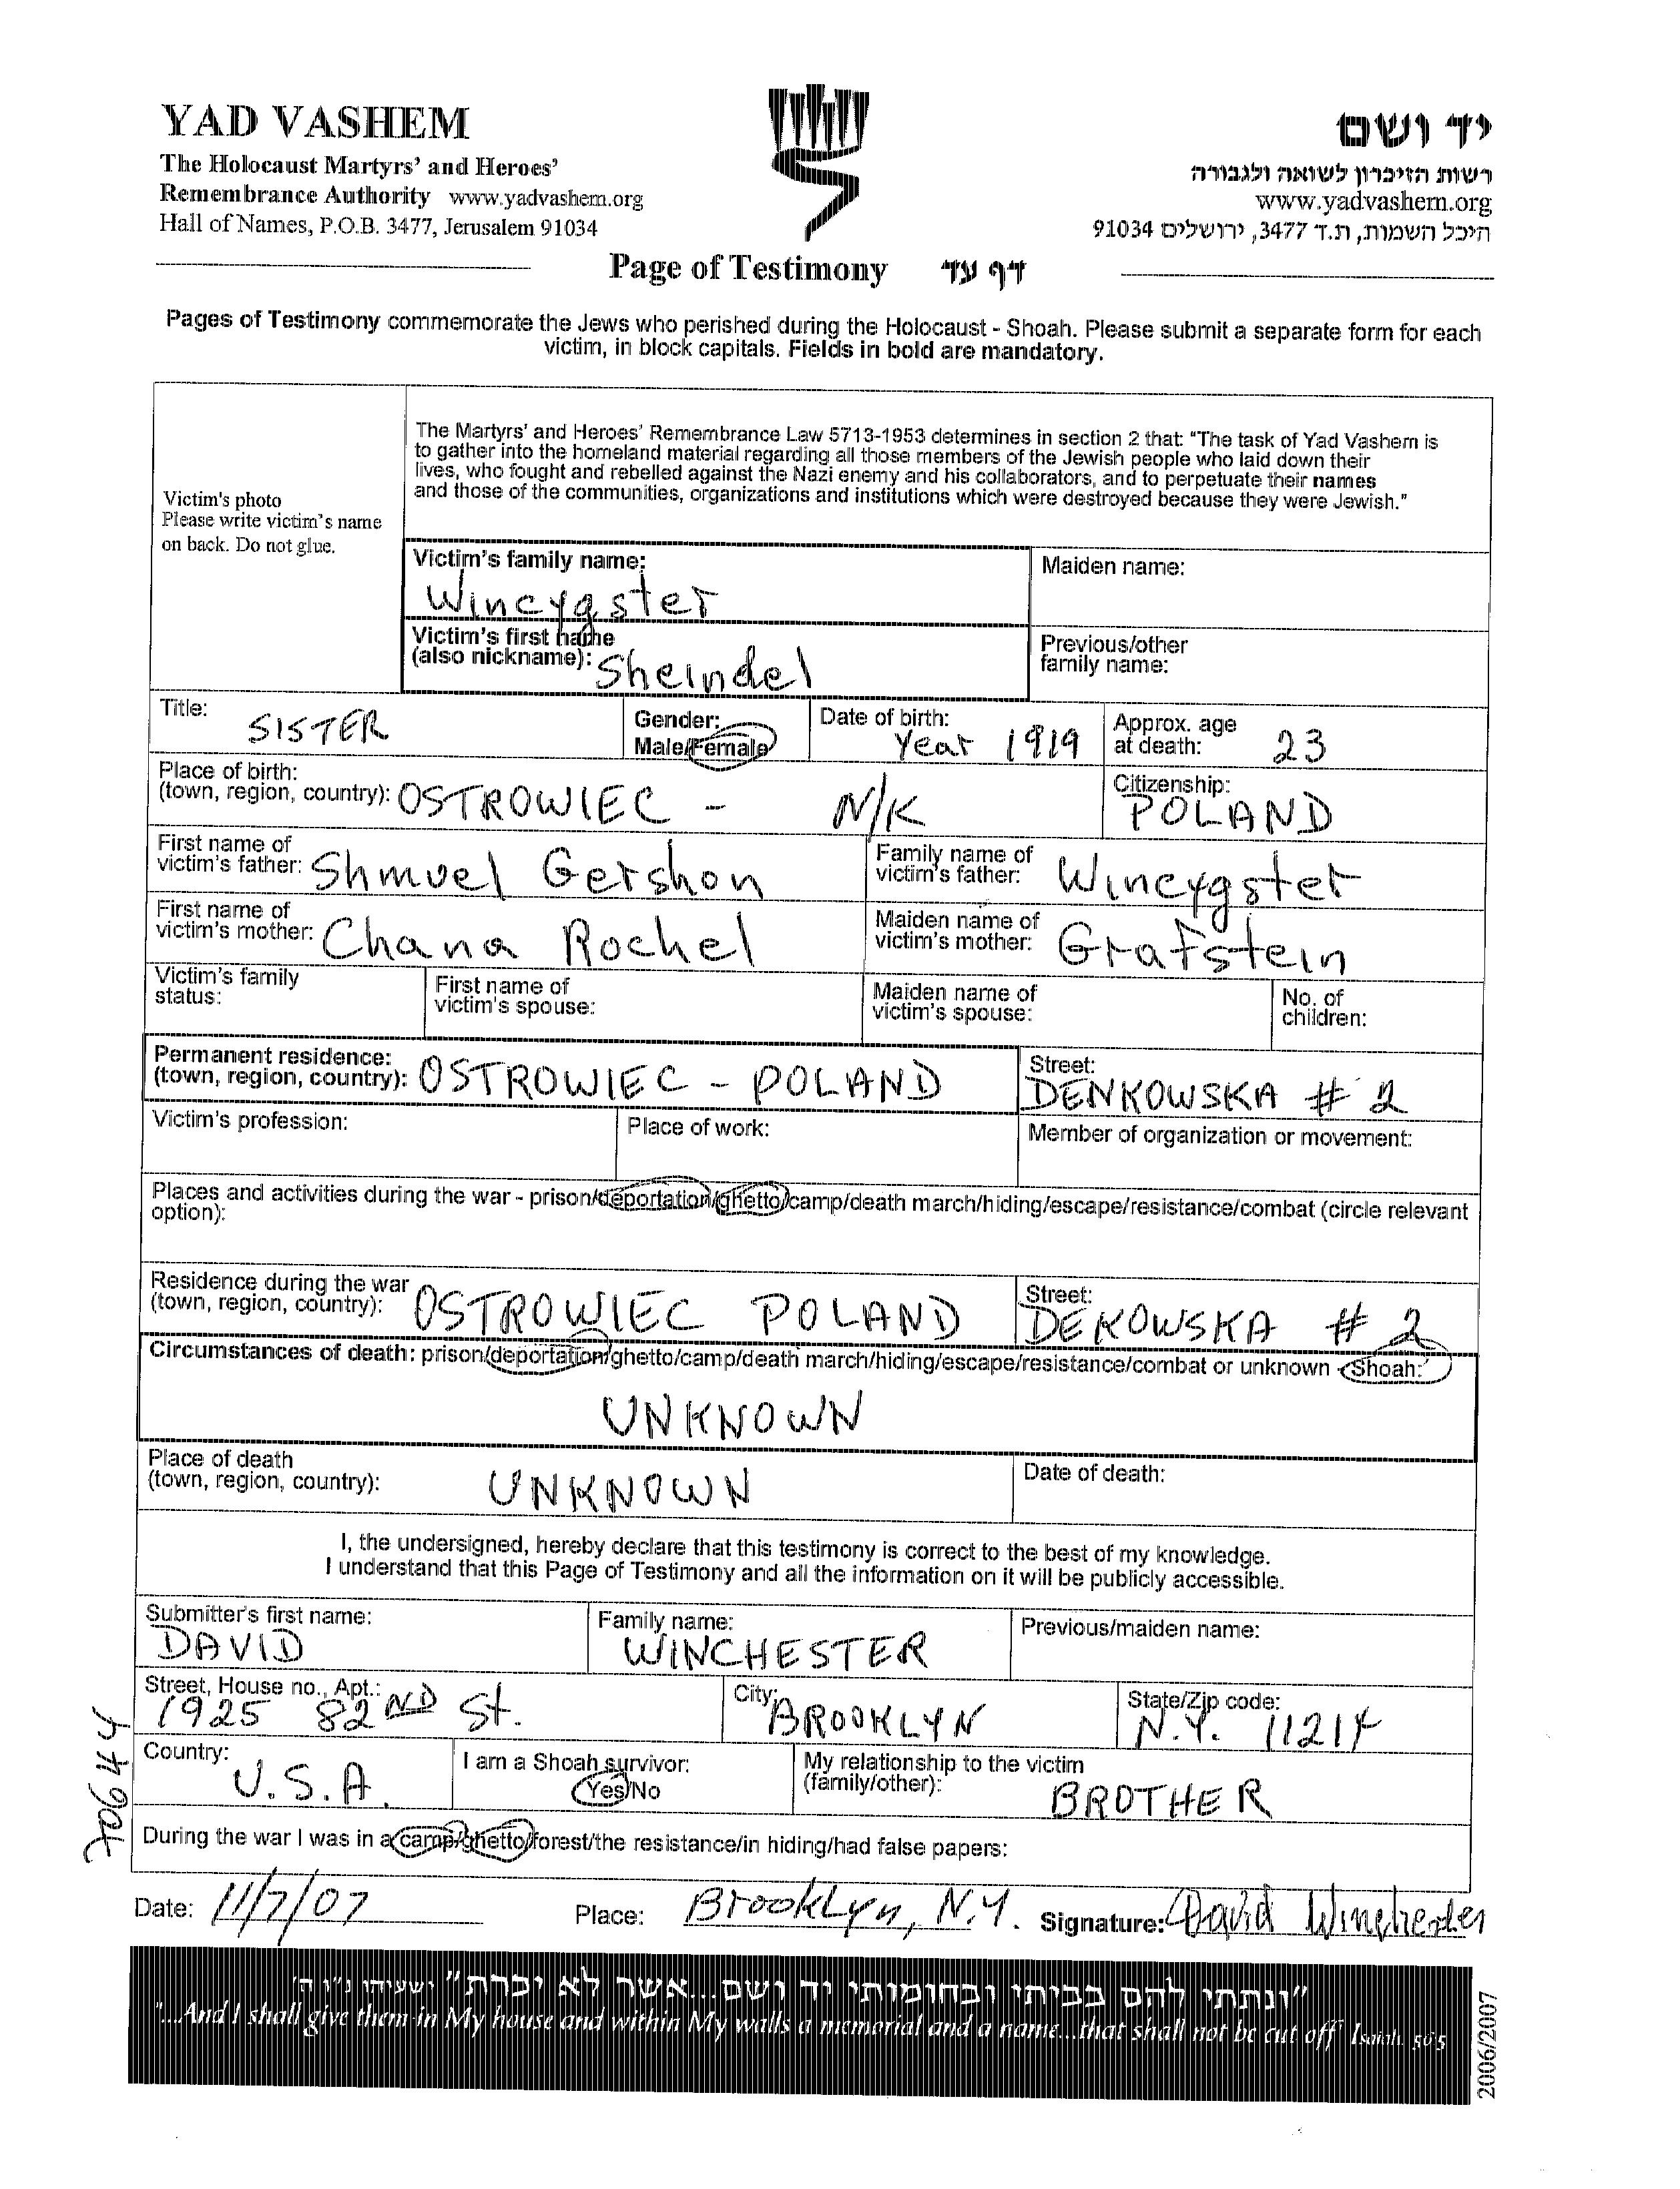 YAD VASHEM
The Holocaust Martyrs' and Heroes'
Remembrance Authority www.yadvashem.org
Hall of Names, P.O.B. 3477, Jerusalem 91034
יד ושם
רשות הזיכרון לשואה ולגבורה
www.yadvashem.org
היכל השמות, ת.ד 3477, ירושלים 91034
Page of Testimony דף עד
Pages of Testimony commemorate the Jews who perished during the Holocaust - Shoah. Please submit a separate form for each
victim, in block capitals. Fields in bold are mandatory.
Victim's photo
Please write victim's name
on back. Do not glue.
The Martyrs' and Heroes' Remembrance Law 5713-1953 determines in section 2 that: "The task of Yad Vashem is
to gather into the homeland material regarding all those members of the Jewish people who laid down their
lives, who fought and rebelled against the Nazi enemy and his collaborators, and to perpetuate their names
and those of the communities, organizations and institutions which were destroyed because they were Jewish."
Victim's family name:
Wincygster
Maiden name:
Victim's first name
(also nickname): Sheindel
Previous/other
family name:
Title: SISTER
Gender:
Male/Female
Date of birth:
Year 1919
Approx. age
at death: 23
Place of birth:
(town, region, country): OSTROWIEC - N/K
Citizenship:
POLAND
First name of
victim's father: Shmuel Gershon
Family name of
victim's father: Wincygster
First name of
victim's mother: Chana Rochel
Maiden name of
victim's mother: Grafstein
Victim's family
status:
First name of
victim's spouse:
Maiden name of
victim's spouse:
No. of
children:
Permanent residence:
(town, region, country): OSTROWIEC - POLAND
Street:
DENKOWSKA # 2
Victim's profession:
Place of work:
Member of organization or movement:
Places and activities during the war - prison/deportation/ghetto/camp/death march/hiding/escape/resistance/combat (circle relevant
option):
Residence during the war
(town, region, country): OSTROWIEC POLAND
Street:
DEKOWSKA # 2
Circumstances of death: prison/deportation/ghetto/camp/death march/hiding/escape/resistance/combat or unknown - Shoah:
UNKNOWN
Place of death
(town, region, country): UNKNOWN
Date of death:
I, the undersigned, hereby declare that this testimony is correct to the best of my knowledge.
I understand that this Page of Testimony and all the information on it will be publicly accessible.
Submitter's first name:
DAVID
Family name:
WINCHESTER
Previous/maiden name:
Street, House no., Apt.:
1925 82ND St.
City:
BROOKLYN
State/Zip code:
N.Y. 11214
Country:
U.S.A.
I am a Shoah survivor:
Yes/No
My relationship to the victim
(family/other): BROTHER
During the war I was in a camp/ghetto/forest/the resistance/in hiding/had false papers:
Date: 11/7/07
Place: Brooklyn, N.Y.
Signature: David Winchester
706444
"ונתתי להם בביתי ובחומותי יד ושם...אשר לא יכרת" ישעיהו נ"ו ה'
"...And I shall give them in My house and within My walls a memorial and a name...that shall not be cut off Isaiah 56:5
2006/2007